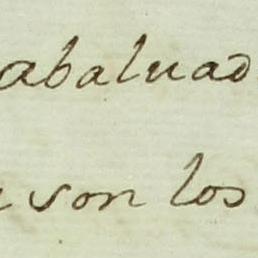 abaluad
son los